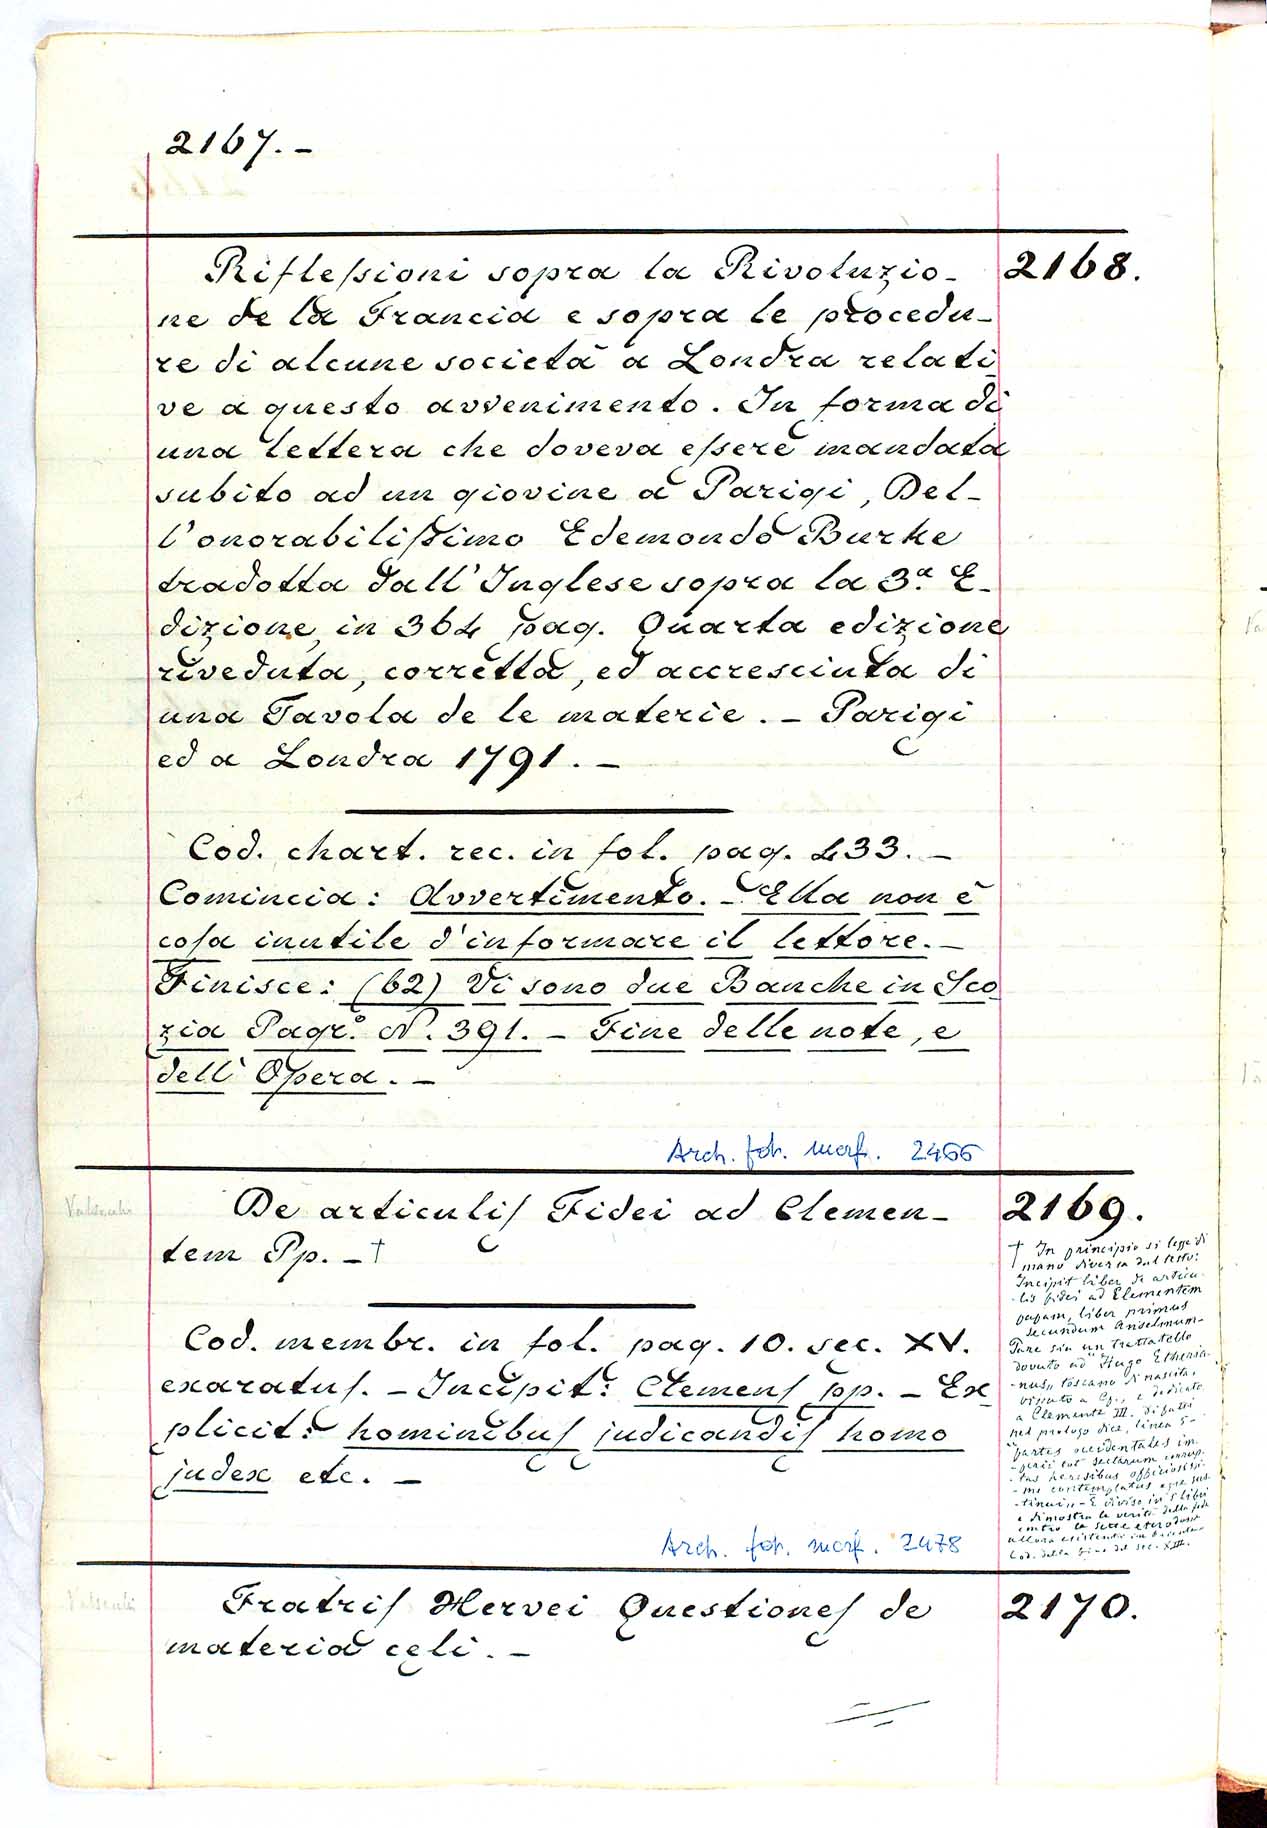 2167.-
Riflessioni sopra la Rivoluzio-
2168.
ne de la Francia e sopra le procedu-
re di alcune società a Londra relati-
ve a questo avvenimento. In forma di
una lettera che doveva essere mandata
subito ad un giovine a Parigi, Del-
l'onorabilissimo Edemondo Burke
tradotta dall'Inglese sopra la 3.a E-
dizione, in 364 pag. Quarta edizione
riveduta, corretta, ed accresciuta di
una Tavola de le materie. - Parigi
ed a Londra 1791. -
Cod. chart. rec. in fol. pag. 433. -
Comincia: Avvertimento. - Ella non è
cosa inutile d'informare il lettore. -
Finisce: (62) Vi sono due Banche in Sco
zia Pagr.° N. 391. - Fine delle note, e
dell'Opera. -
Arch. fot. morf. 2466
De articulis Fidei ad Clemen-
2169.
tem Pp. - †
Cod. membr. in fol. pag. 10. sec. XV.
exaratus. - Incipit: Clemens pp. - Ex
plicit: hominibus judicandis homo
judex etc. -
† In principio si legge di
mano diversa dal testo:
Incipit liber de articu-
lis fidei ad Clementem
papam, liber primus
secundum Anselmum-
Pare sia un trattatello
dovuto ad "Hugo Etheria-
nus„ toscano di nascita,
vissuto a Cp., e dedicato
a Clemente III. Difatti
nel prologo dice, linea 5-
"partes occidentales im
-tinui„ - È diviso in 5 libri
e dimostra la verità della fede
contro le sette eterodosse
Cod. della fine del sec. XIII.
Arch. fot. morf. 2478
Fratris Hervei Questiones de
2170.
materia celi. -